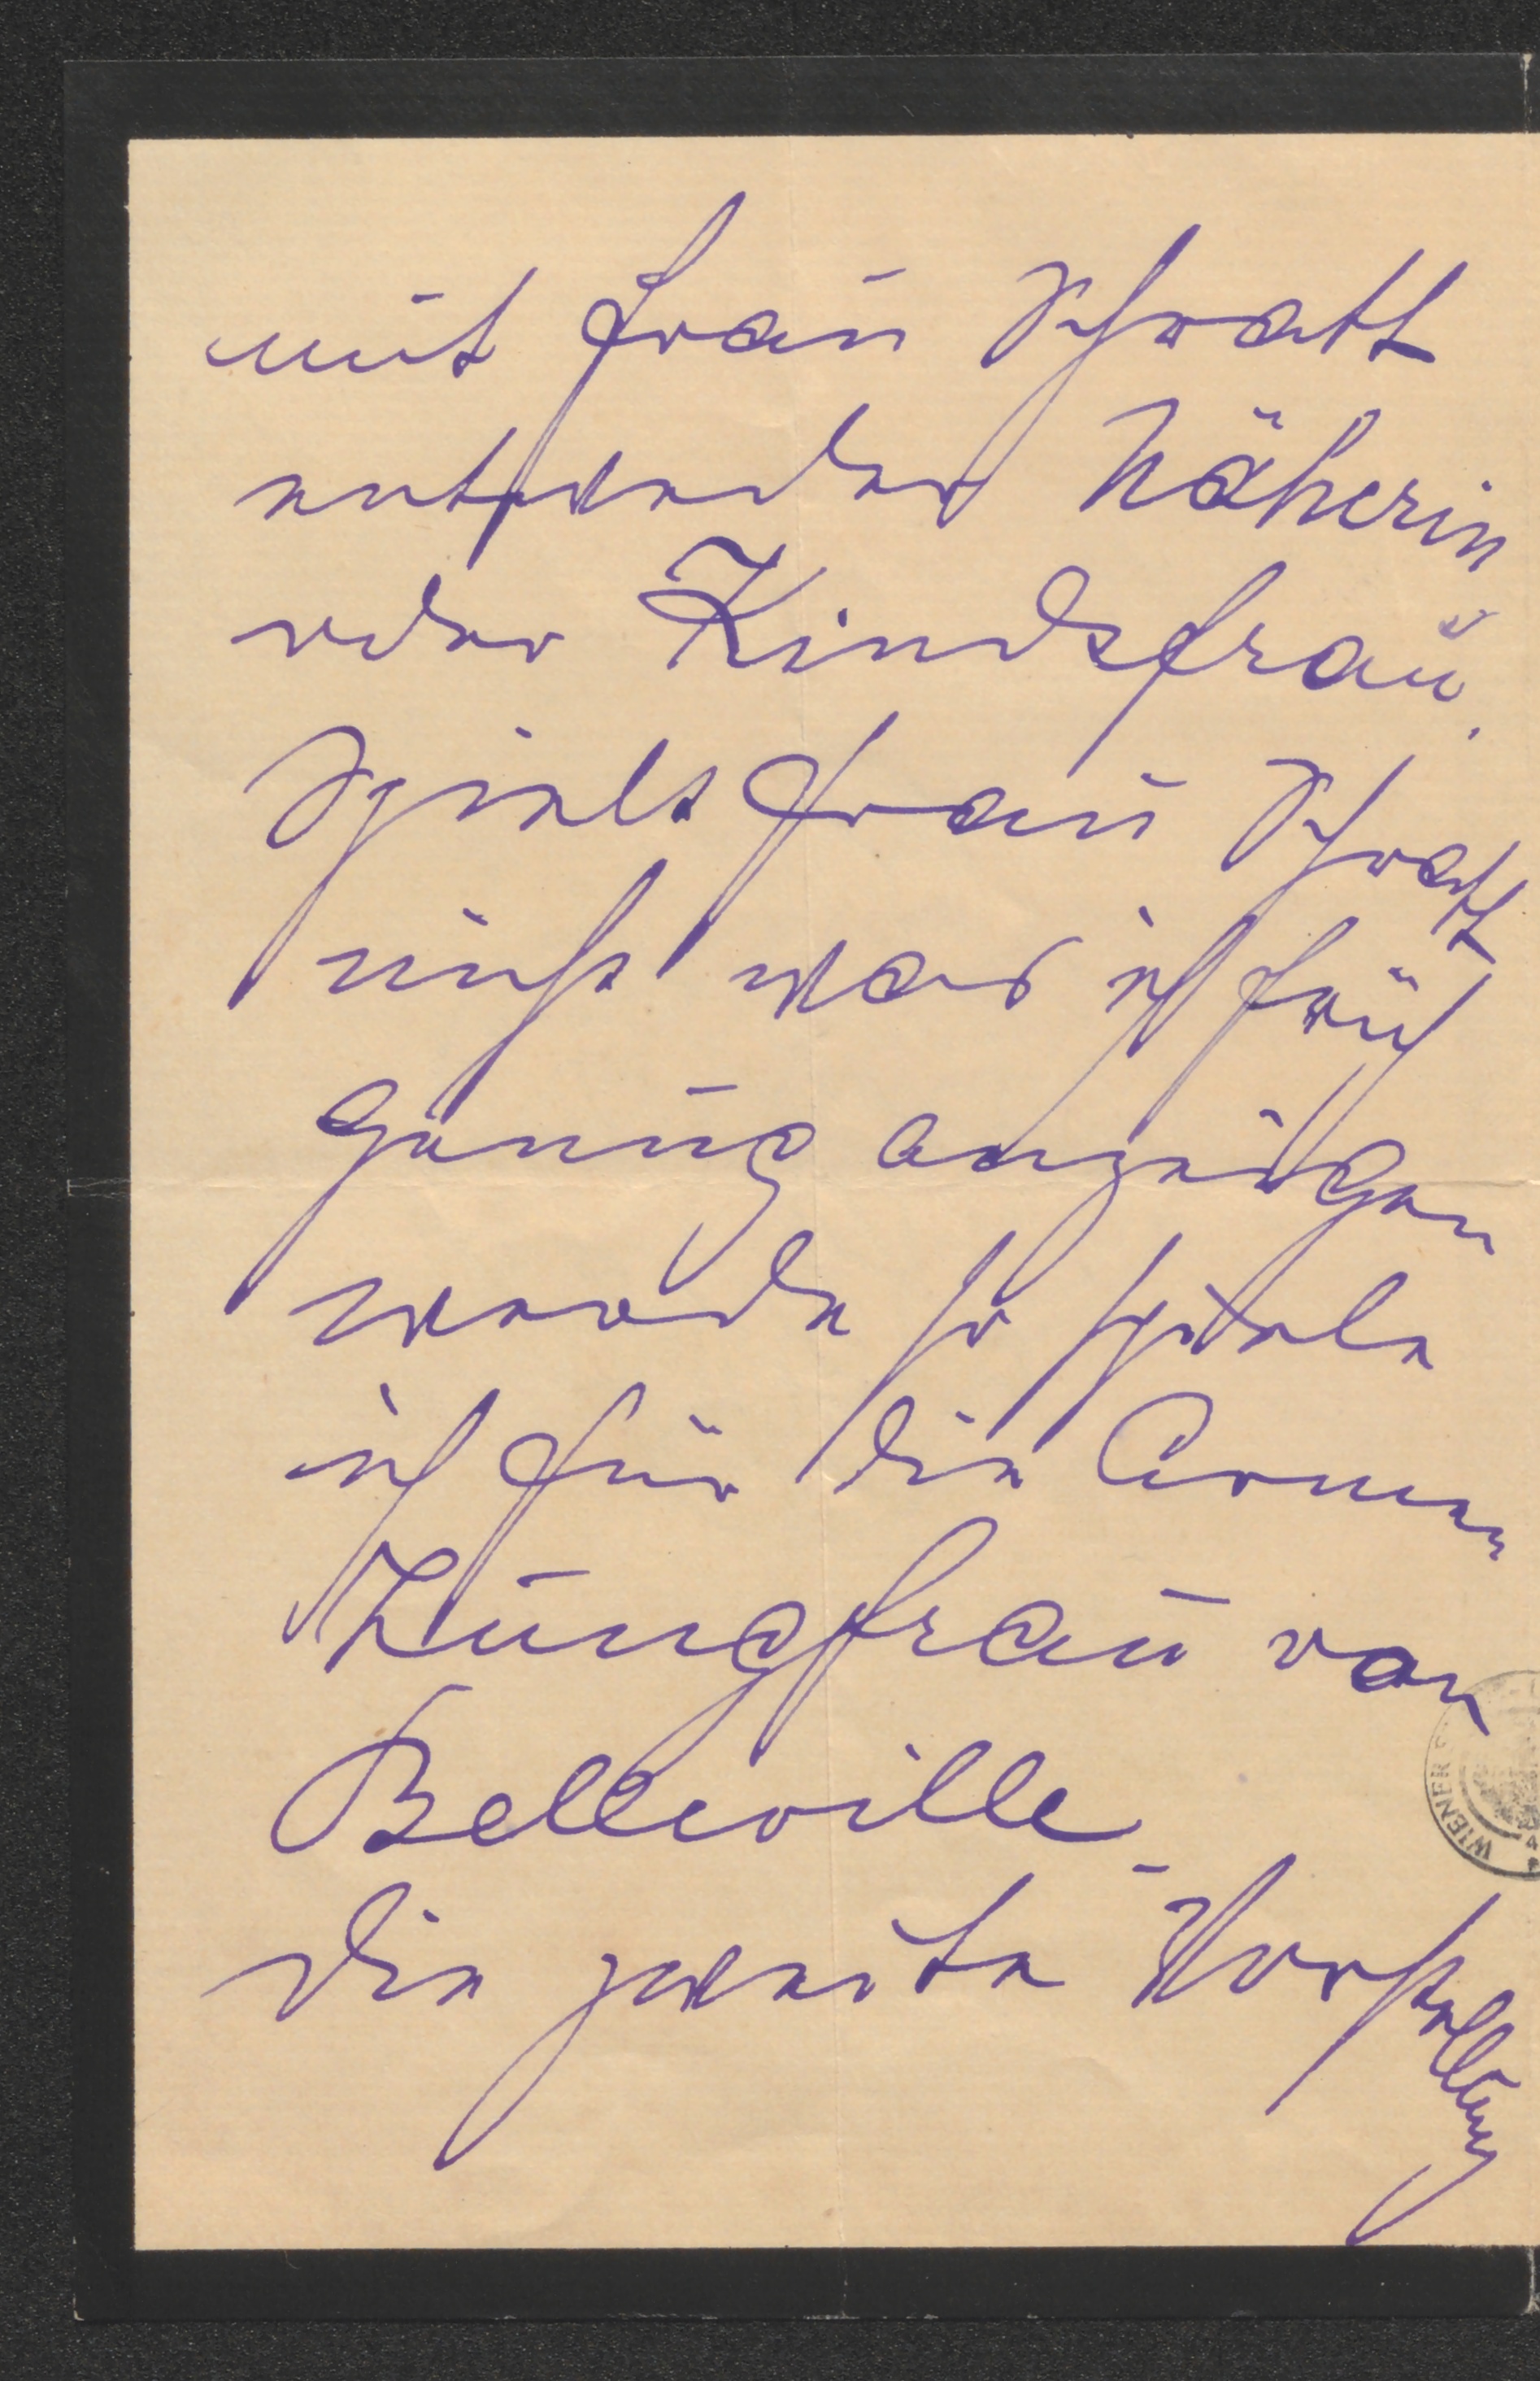 mit Frau Schratt
entweder Näherin
oder Kindsfrau.
Spielt Frau Schratt
nicht was ich früh
genug anzeigen
werde so spiele
ich für die Armen
Jungfrau von
Belleville.
Die zweite Vorstellung
WIENER